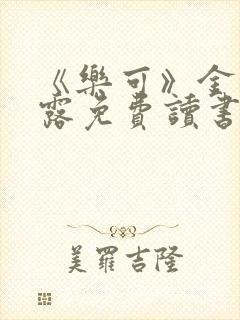 《樂可》全
露免費讀書
美羅吉隆